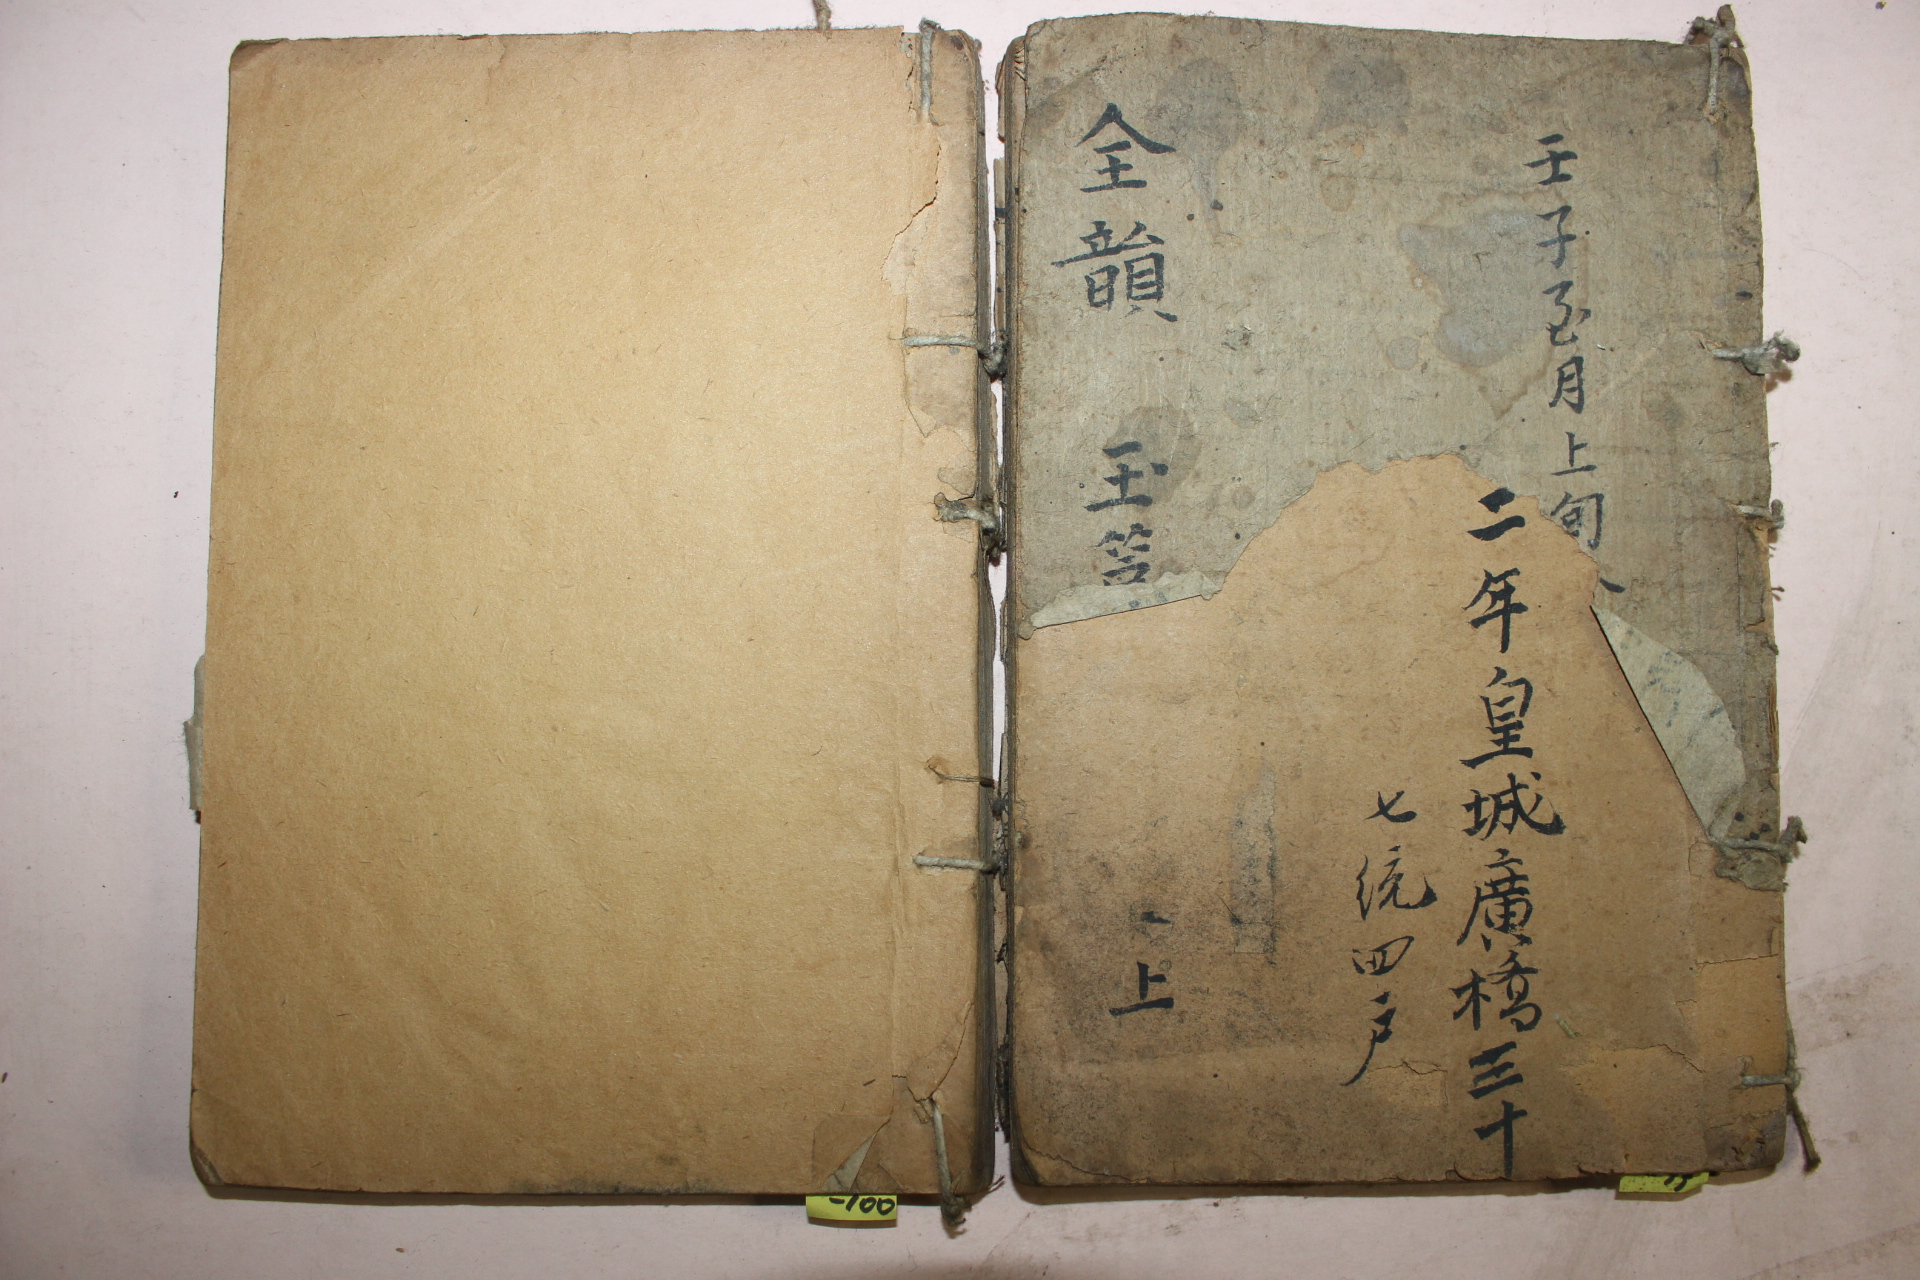 壬子至月上旬
二年皇城廣橋三十
七統四戶
全韻 玉
上
-100